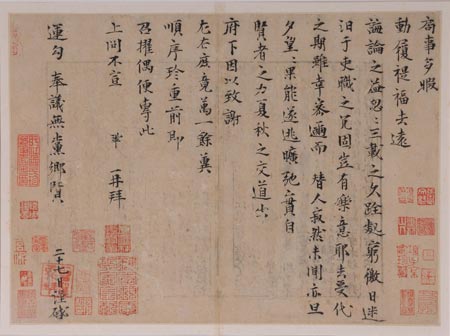 局事多暇
動履禔福去遠
誨論之益忽忽三載之久跧處窮徼日迷
汩于吏職之冗固豈有樂意耶去受代
之期雖幸密邇而替人寂然未聞亦旦
夕望望果能遂逃曠弛之責自
賢者之力夏秋之交道出
府下因以致謝
左右庶竟萬一餘冀
順序珍重前即
召擢偶便專此
上問不宣 鞏 再拜
運勾奉議無黨鄉賢
二十七日謹啟